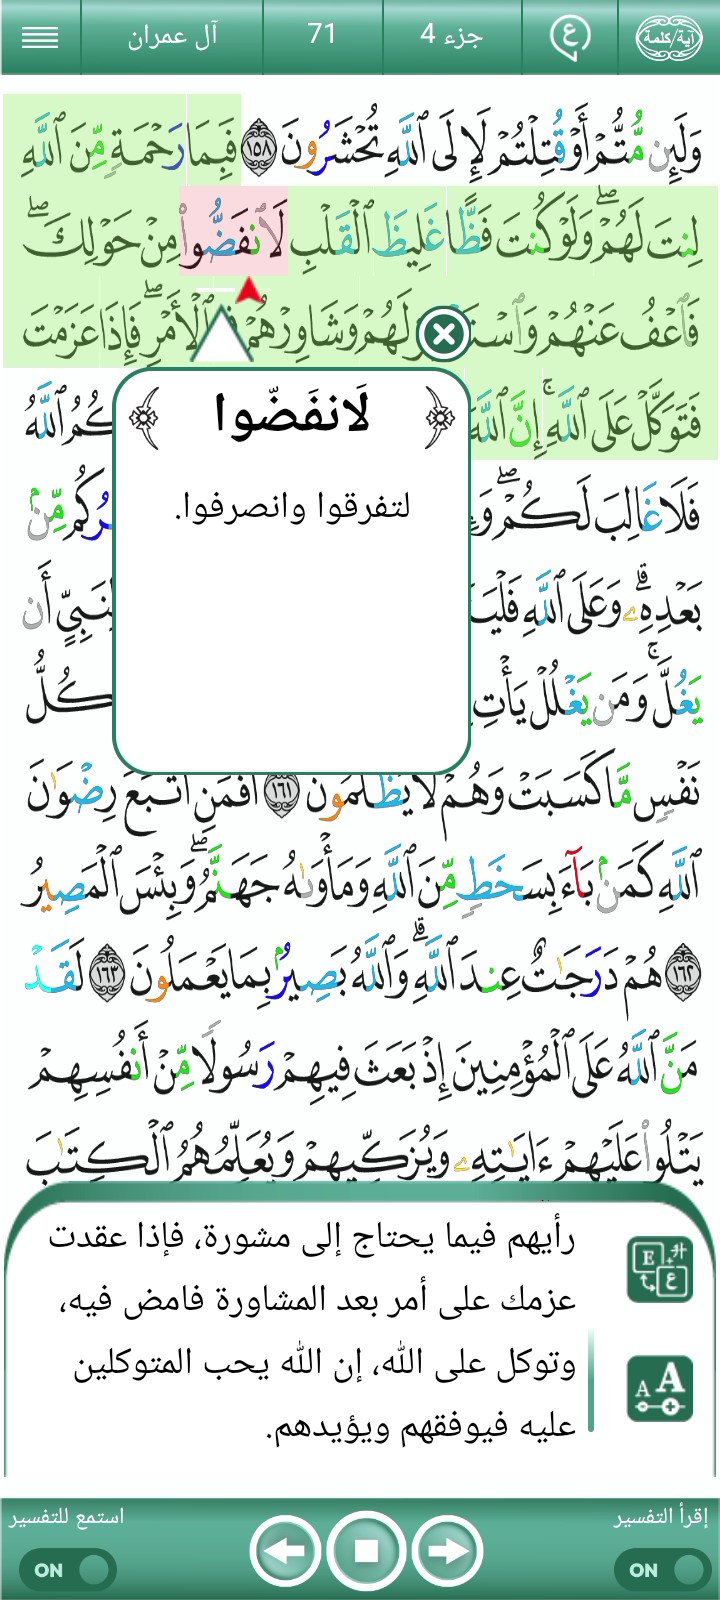 آية/كلمة
ع
جزء 4
71
آل عمران
وَلَئِن مُّتُّمْ أَوْ قُتِلْتُمْ لَإِلَى ٱللَّهِ تُحْشَرُونَ ١٥٨ فَبِمَا رَحْمَةٍ مِّنَ ٱللَّهِ
لِنتَ لَهُمْۖ وَلَوْ كُنتَ فَظًّا غَلِيظَ ٱلْقَلْبِ لَٱنفَضُّوا۟ مِنْ حَوْلِكَۖ
فَٱعْفُ عَنْهُمْ لَهُمْ وَشَاوِرْهُمْ ٱلْأَمْرِۖ فَإِذَا عَزَمْتَ
فَتَوَكَّلْ عَلَى ٱللَّهِۚ إِنَّ ٱللَّهَ
لَانفَضّوا
لتفرقوا وانصرفوا.
فَلَا غَالِبَ لَكُمْۖ مِّنۢ
بَعْدِهِۦۗ وَعَلَى ٱللَّهِ أَن
يَغُلَّۚ وَمَن يَغْلُلْ يَأْتِ كُلُّ
نَفْسٍ مَّا كَسَبَتْ وَهُمْ لَا يُظْلَمُونَ ١٦١ أَفَمَنِ ٱتَّبَعَ رِضْوَٰنَ
ٱللَّهِ كَمَنۢ بَآءَ بِسَخَطٍ مِّنَ ٱللَّهِ وَمَأْوَىٰهُ جَهَنَّمُۖ وَبِئْسَ ٱلْمَصِيرُ
١٦٢ هُمْ دَرَجَٰتٌ عِندَ ٱللَّهِۗ وَٱللَّهُ بَصِيرٌۢ بِمَا يَعْمَلُونَ ١٦٣ لَقَدْ
مَنَّ ٱللَّهُ عَلَى ٱلْمُؤْمِنِينَ إِذْ بَعَثَ فِيهِمْ رَسُولًا مِّنْ أَنفُسِهِمْ
يَتْلُوا۟ عَلَيْهِمْ ءَايَٰتِهِۦ وَيُزَكِّيهِمْ وَيُعَلِّمُهُمُ ٱلْكِتَٰبَ
رأيهم فيما يحتاج إلى مشورة، فإذا عقدت
عزمك على أمر بعد المشاورة فامض فيه،
وتوكل على الله، إن الله يحب المتوكلين
عليه فيوفقهم ويؤيدهم.
إقرأ التفسير
استمع للتفسير
ON
ON